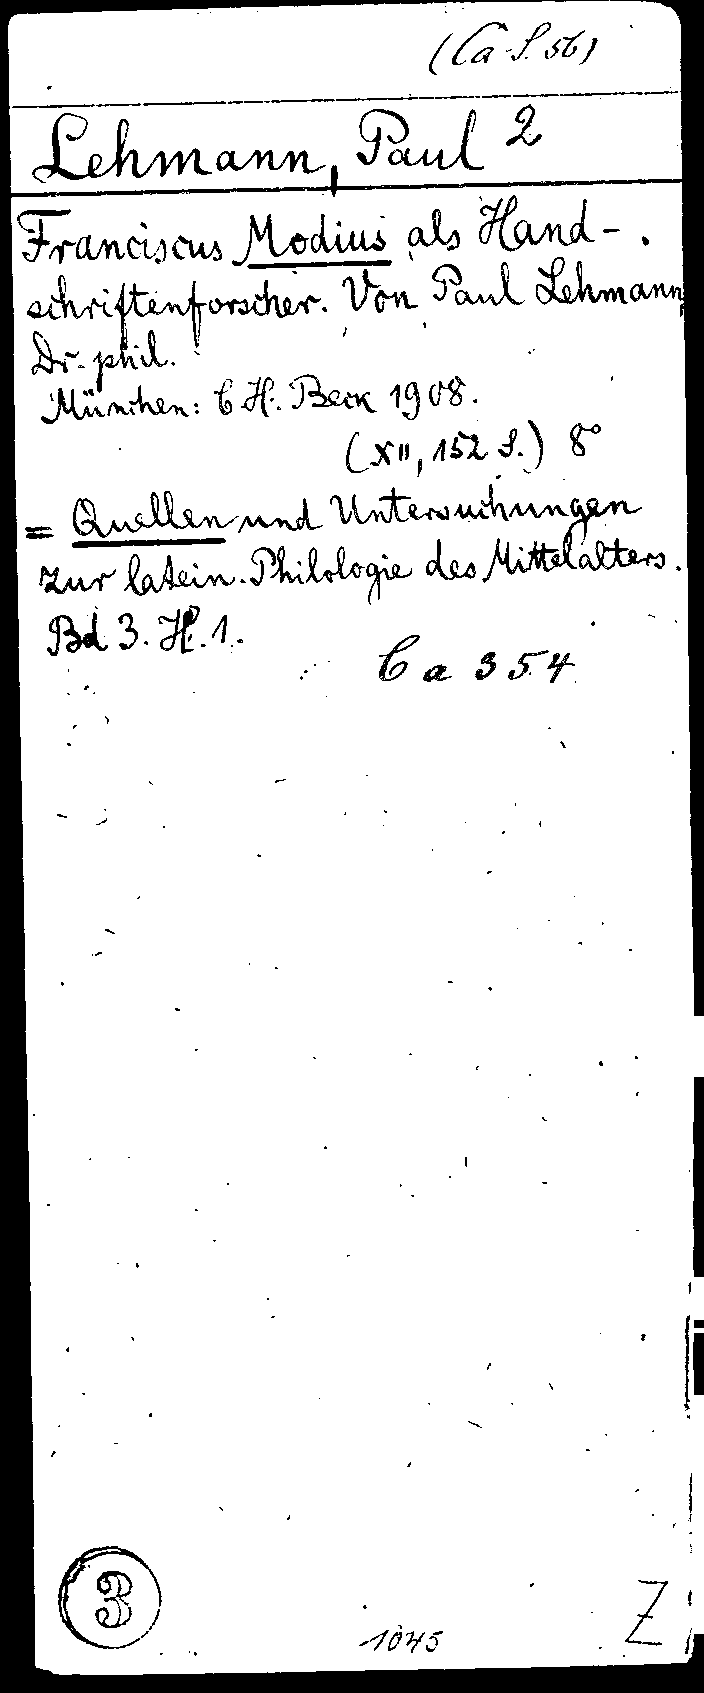 (Ca S. 56)
Lehmann, Paul 2
Franciscus Modius als Hand-
schriftenforscher. Von Paul Lehmann,
Dr. phil.
München: C. H. Beck 1908.
(XII, 152 S.) 8°
= Quellen und Untersuchungen
zur latein. Philologie des Mittelalters.
Bd 3. H. 1.
Ca 354
3
1045
Z